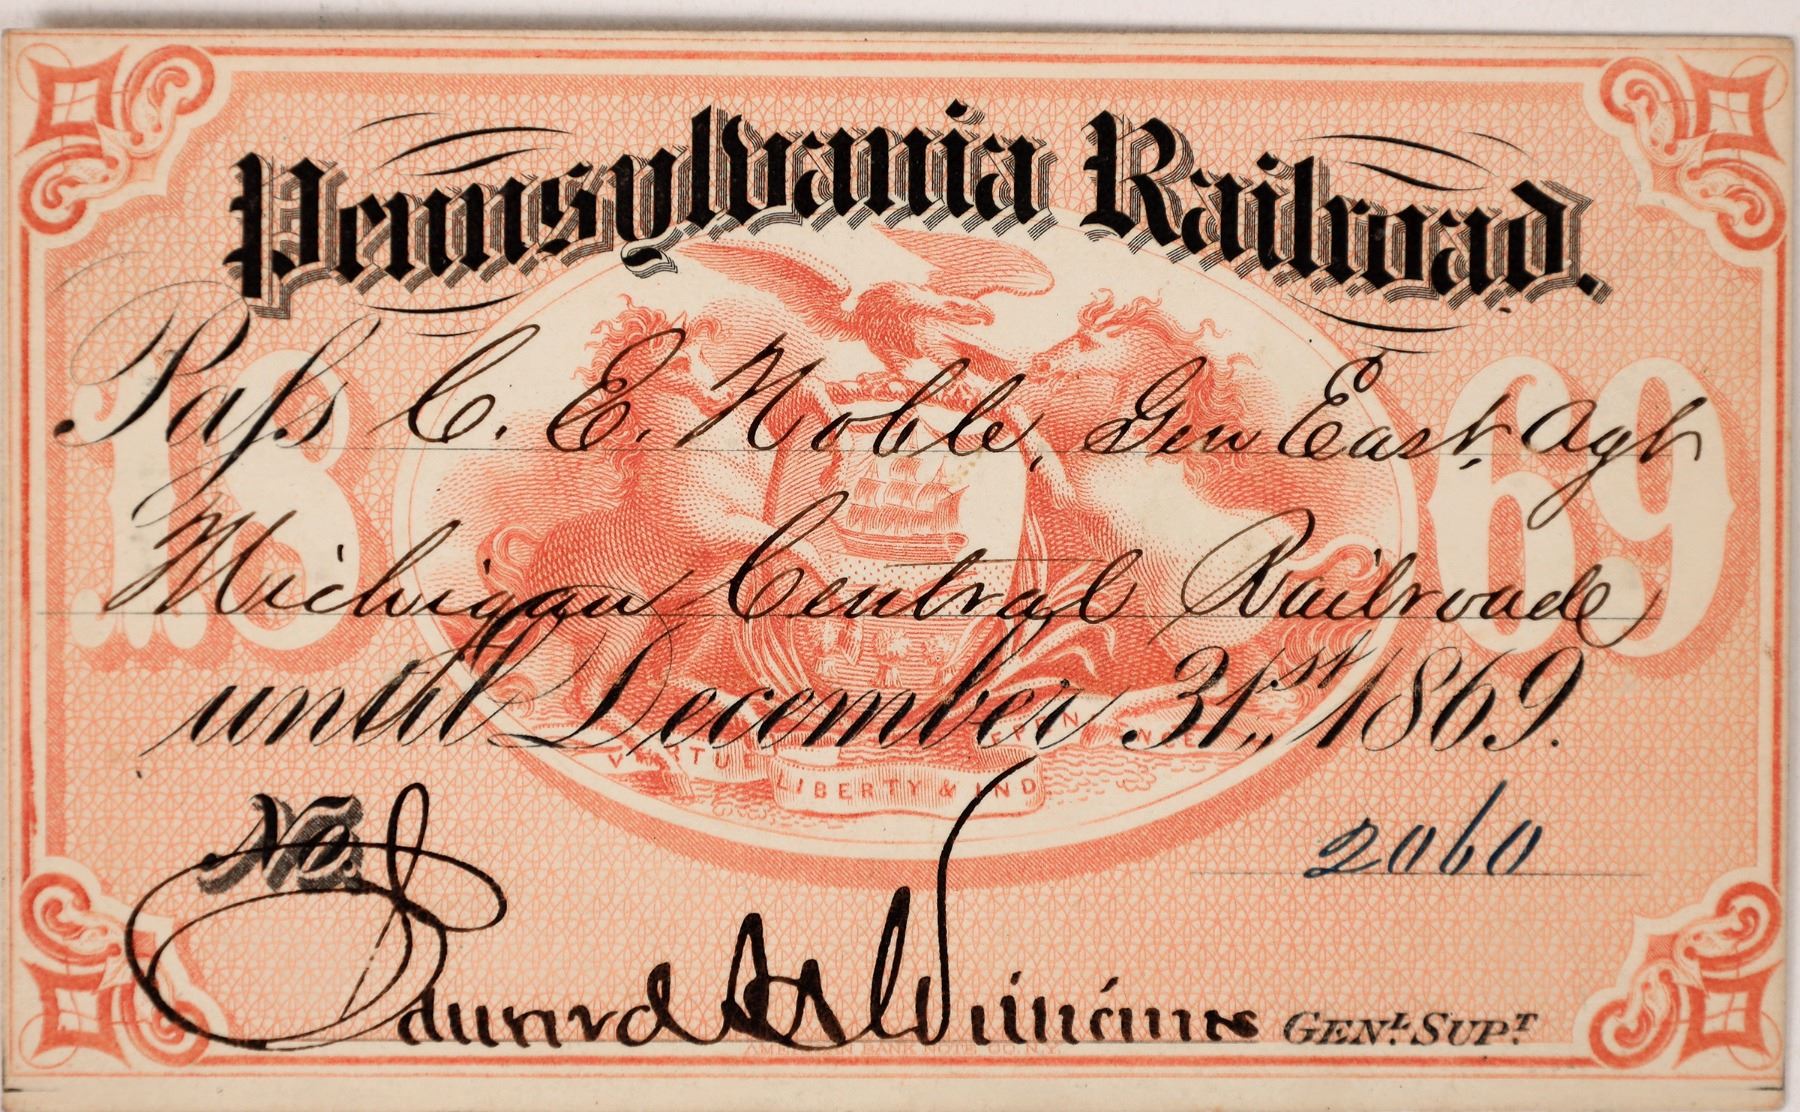 Pennsylvania Railroad.
18 69
Pass C. E. Noble, Gen East. Agt
Michigan Central Railroad
until December 31st, 1869.
VIRTUE LIBERTY & INDEPENDENCE
No. 2060
Edward H Williams GENL. SUPT.
AMERICAN BANK NOTE CO. N.Y.